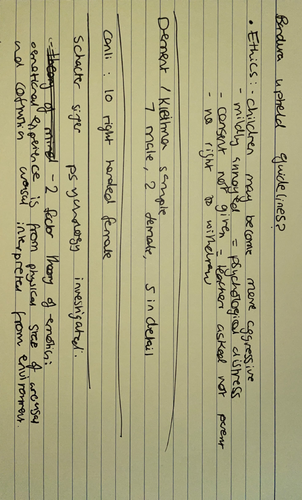 Bandura upheld guidelines?
• Ethics: - children may become more aggressive
- mildly annoyed = psychological distress
- consent not given = teachers asked not parent
- no right to withdraw
Dement / Kleitman sample
7 male, 2 female, 5 in detail
Canli : 10 right handed female
Schacter Siger psychology investigated:
- theory of mind - 2 factor theory of emotion:
emotional experience is from physical state of arousal
and cognition arousal interpreted from environment.